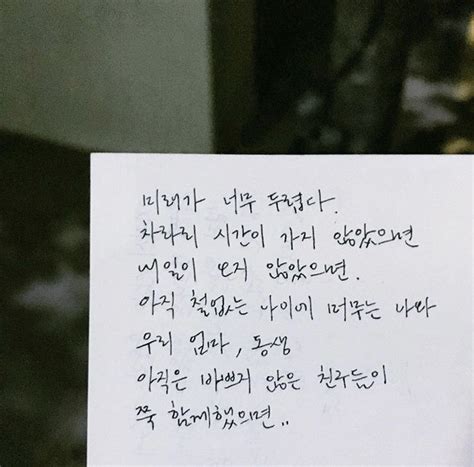 미래가 너무 두렵다.
차라리 시간이 가지 않았으면
내일이 오지 않았으면.
아직 철없는 나이에 머무는 나와
우리 엄마, 동생
아직은 바쁘지 않은 친구들이
쭉 함께했으면..